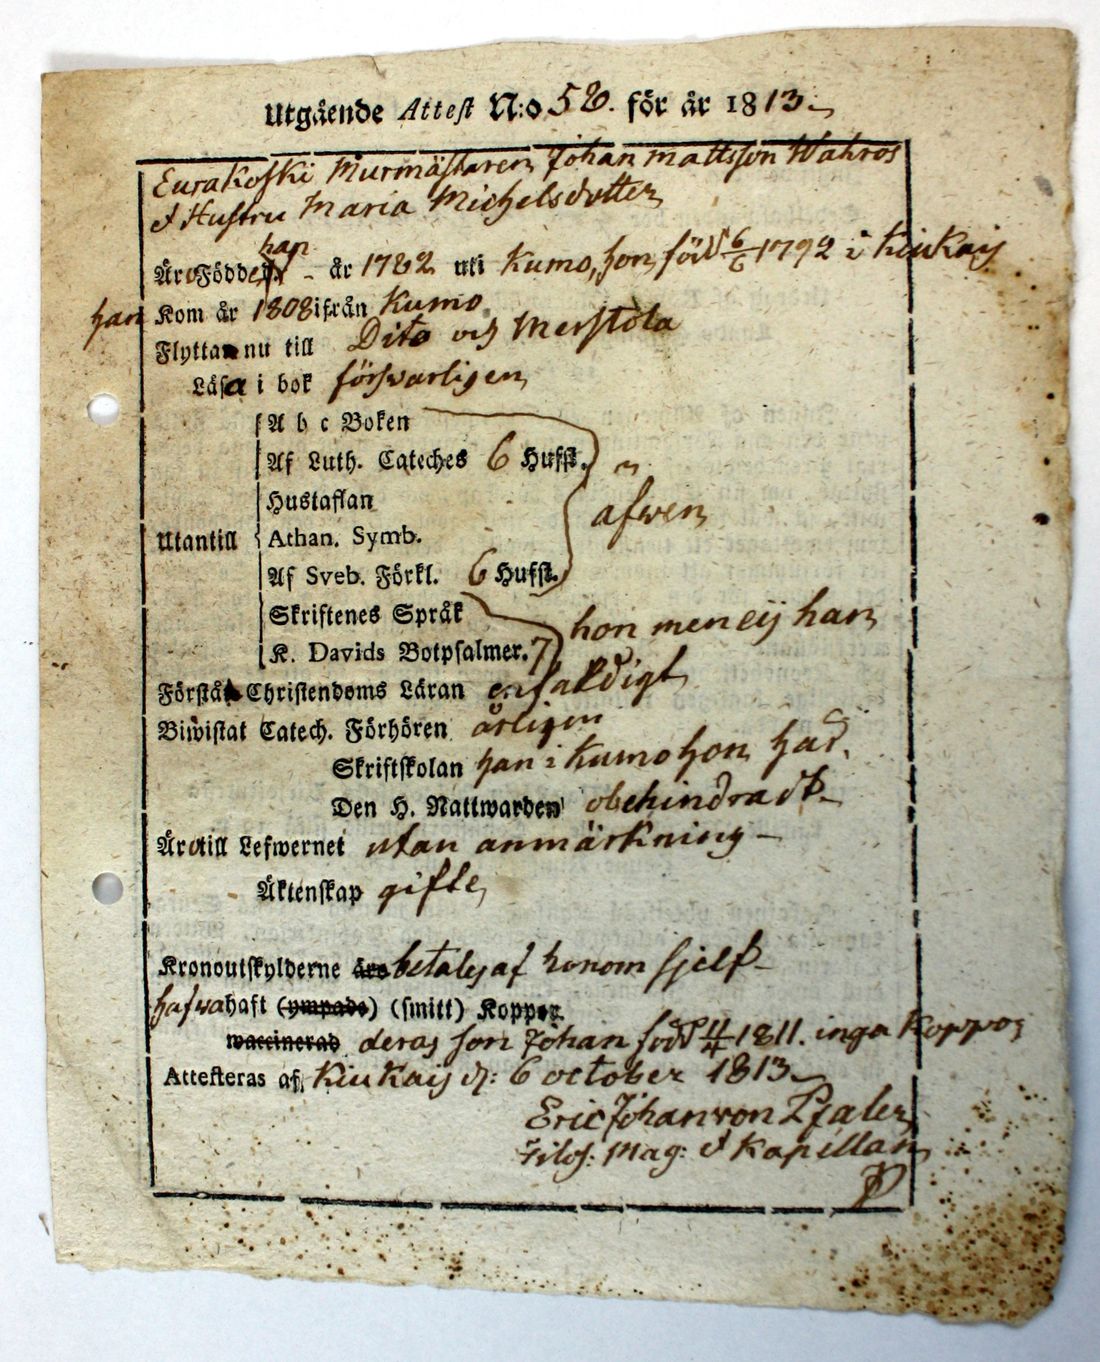 Utgående Attest N:o 58. för år 1813.
Eurakoski Murmästaren Johan Mattsson Wahros
& Hustru Maria Michelsdotter
han
Äro Födde år 1782 uti Kumo, hon född 6/6 1792 i Kiukais
han Kom år 1808 ifrån Kumo
Flytta nu till Dito och Merstola
Läsa i bok försvarligen
A b c Boken
Af Luth. Cateches 6 Hufst.
Hustaflan
äfwen
Utantill Athan. Symb.
Af Sveb. Förkl. 6 Hufst.
Skriftenes Språk
hon men eij han
K. Davids Botpsalmer. 7
Förstå Christendoms Läran enfaldigt
Biwistat Catech. Förhören årligen
Skriftskolan han i Kumo hon här.
Den H. Nattwarden obehindradt
Äro till Lefwernet utan anmärkning
Äktenskap gifte
Kronoutskylderne äro betales af honom sjelf
hafwa haft (ympade) (smitt) Koppor
waccinerad deras son Johan född 11/4 1811. inga Koppor
Attesteras af, Kiukais d: 6 october 1813
Eric Johan von Pfaler
Filos: Mag: & Kapellan